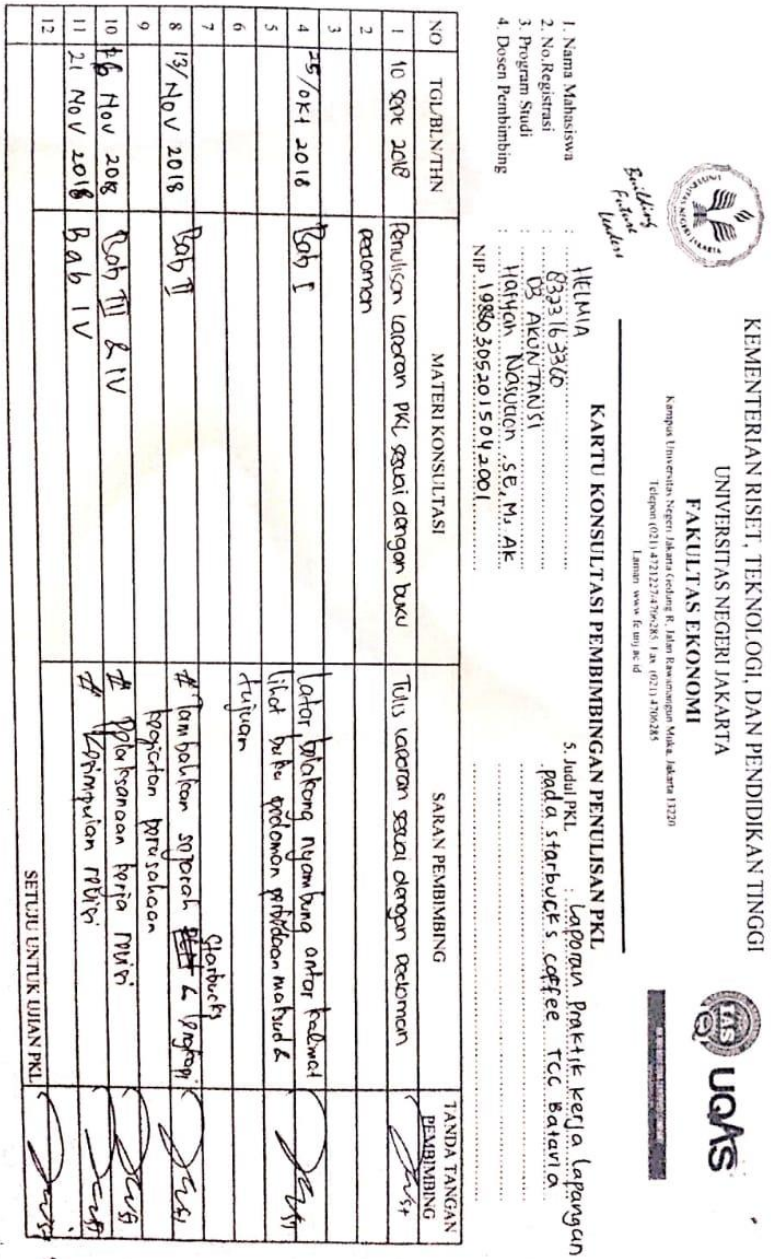 KEMENTERIAN RISET, TEKNOLOGI, DAN PENDIDIKAN TINGGI
UNIVERSITAS NEGERI JAKARTA
FAKULTAS EKONOMI
Kampus Universitas Negeri Jakarta Gedung R, Jalan Rawamangun Muka, Jakarta 13220
Telepon (021) 4721227/4706285, Fax (021) 4706285
Laman: www.fe.unj.ac.id
Building
Future
Leaders
UQAS
KARTU KONSULTASI PEMBIMBINGAN PENULISAN PKL
1. Nama Mahasiswa : HELMIA
2. No.Registrasi : 8323163360
3. Program Studi : D3 AKUNTANSI
4. Dosen Pembimbing : Haryan Nasution, SE, Ms. AK
NIP. 198803052015042001
5. Judul PKL : Laporan Praktik Kerja Lapangan
pada starbucks coffee TCC Batavia
NO TGL/BLN/THN MATERI KONSULTASI SARAN PEMBIMBING TANDA TANGAN PEMBIMBING
1 10 Sept 2018 Penulisan Laporan PKL sesuai dengan buku Tulis laporan sesuai dengan Pedoman
2 pedoman
3
4 25/OKt 2018 Bab I Latar belakang nyambung antar kalimat
5 lihat buku pedoman perbedaan maksud &
6 tujuan
7 Starbucks
8 13/Nov 2018 Bab II # Tambahkan sejarah &
9 kegiatan perusahaan
10 Nov 2018 Bab III & IV # Pelaksanaan kerja revisi
11 21 Nov 2018 Bab IV # Kesimpulan revisi
12
SETUJU UNTUK UJIAN PKL